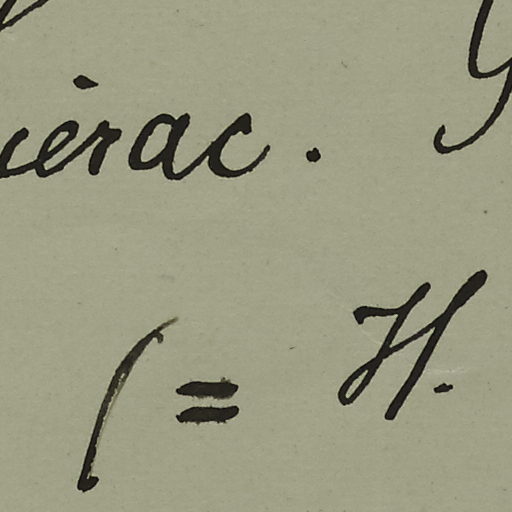 ierac.
(= H.